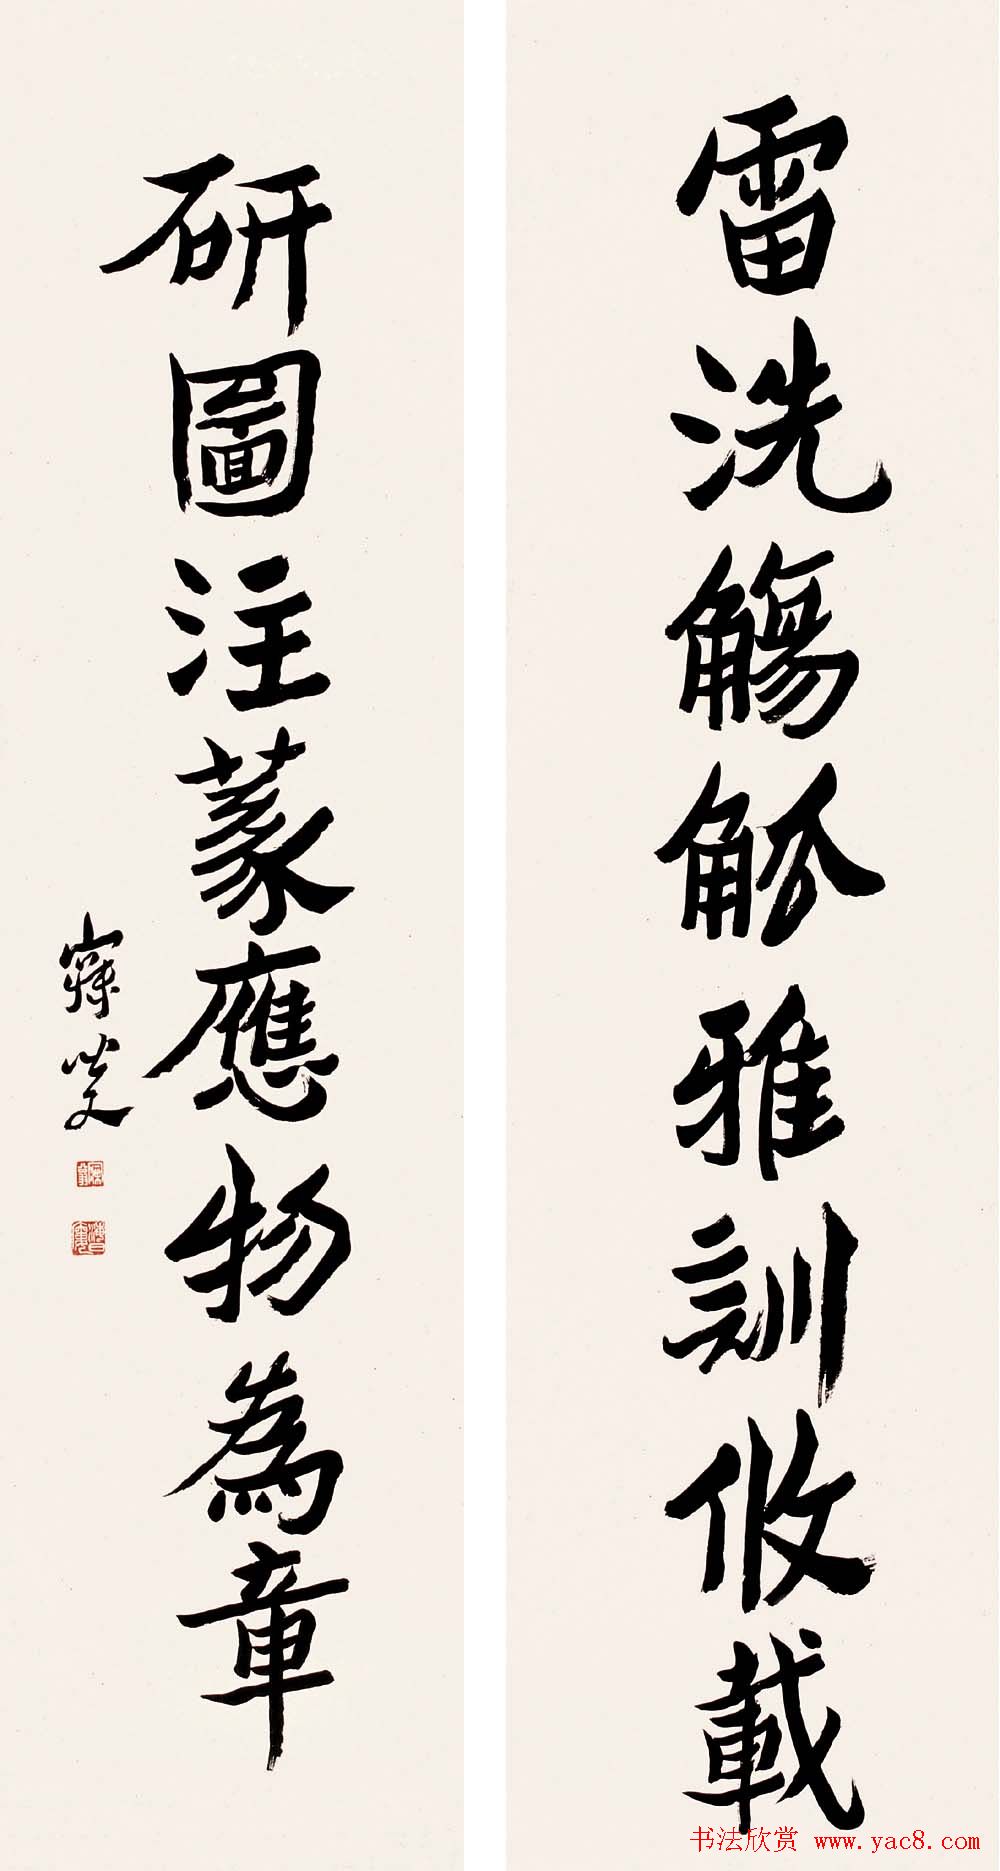 雷洗觴觚雅訓攸載
研圖注篆應物為章
寐叟
书法欣赏 www.yac8.com